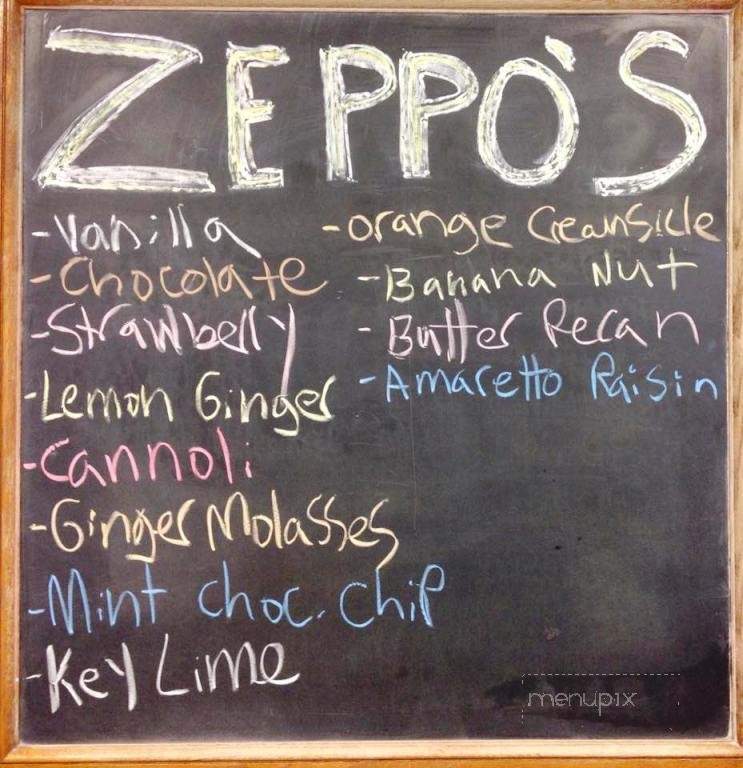 ZEPPO'S
-Vanilla
-Chocolate
-Strawberry
-Lemon Ginger
-Cannoli
-Ginger Molasses
-Mint Choc. Chip
-Key Lime
-Orange Creamsicle
-Banana Nut
-Butter Pecan
-Amaretto Raisin
menupix